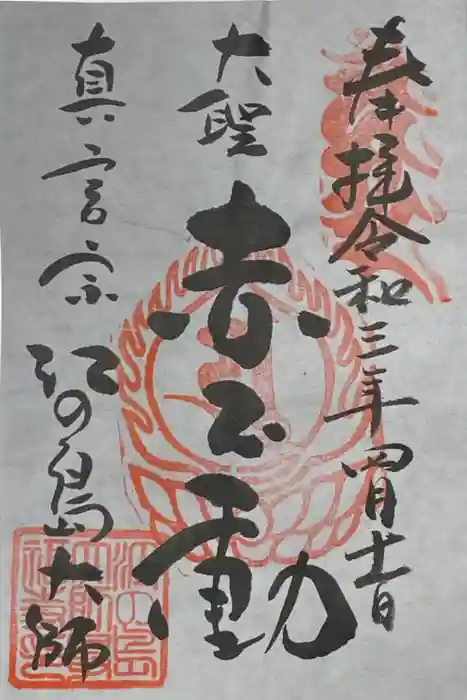 奉拝令和三年四月十一日
大聖
赤不動
真言宗
江の島大師